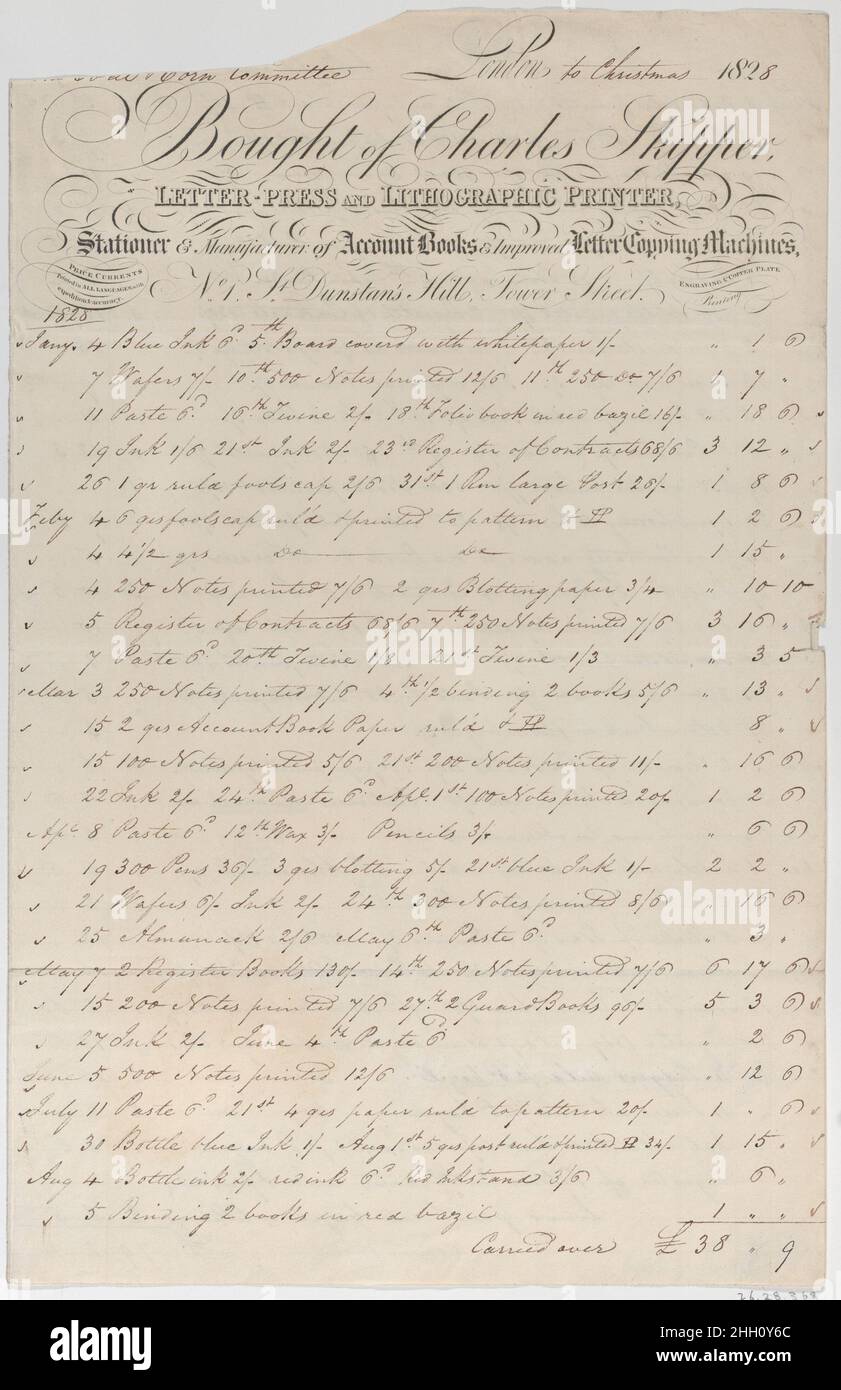 Coal & Corn Committee London to Christmas 1828
Bought of Charles Skipper,
LETTER-PRESS AND LITHOGRAPHIC PRINTER,
Stationer & Manufacturer of Account Books & Improved Letter Copying Machines,
PRICE CURRENTS
Printed in ALL LANGUAGES with
expedition & accuracy.
No. 1. St. Dunstan's Hill, Tower Street.
ENGRAVING & COPPER PLATE
Printing
1828
Jany. 4 Blue Ink 6d 5th Board coverd with white paper 1/- " 1 6
7 Wafers 7/- 10th 500 Notes printed 12/6 11th 250 Do 7/6 1 7 "
11 Paste 6d 16th Twine 2/- 18th Folio book in red bazil 16/- " 18 6
19 Ink 1/6 21st Ink 2/- 23rd Register of Contracts 68/6 3 12 "
26 1 qr ruld foolscap 2/6 31st 1 Rm large Post 26/- 1 8 6
Feby 4 6 qrs foolscap rul'd & printed to pattern & 1 2 6
4 4 1/2 qrs Do Do 1 15 "
4 250 Notes printed 7/6 2 qrs Blotting paper 3/4 " 10 10
5 Register of Contracts 68/6 7th 250 Notes printed 7/6 3 16 "
7 Paste 6d 20th Twine 1/8 21st Twine 1/3 " 3 5
Mar 3 250 Notes printed 7/6 4th 1/2 binding 2 books 5/6 " 13 "
15 2 qrs Account Book Paper rul'd & 8 "
15 100 Notes printed 5/6 21st 200 Notes printed 11/- " 16 6
22 Ink 2/- 24th Paste 6d Apl. 1st 100 Notes printed 20/- 1 2 6
Apl 8 Paste 6d 12th Wax 3/- Pencils 3/- " 6 6
19 300 Pens 36/- 3 qrs blotting 5/- 21st blue Ink 1/- 2 2 "
21 Wafers 6/- Ink 2/- 24th 300 Notes printed 8/6 " 16 6
25 Almanack 2/6 May 6th Paste 6d " 3 "
May 7 2 Register Books 130/- 14th 250 Notes printed 7/6 6 17 6
15 200 Notes printed 7/6 27th 2 Guard Books 96/- 5 3 6
27 Ink 2/- June 4th Paste 6d " 2 6
June 5 500 Notes printed 12/6 " 12 6
July 11 Paste 6d 21st 4 qrs paper rul'd to pattern 20/- 1 " 6
30 Bottle blue Ink 1/- Aug 1st 5 qrs post rul'd & printed 34/- 1 15 "
Aug 4 Bottle ink 2/- red ink 6d Red Inkstand 3/6 " 6 "
5 Binding 2 books in red bazil 1 " "
Carried over £ 38 " 9
26.28.868
alamy
alamy
alamy
alamy
Image ID: 2HH0Y6C
www.alamy.com